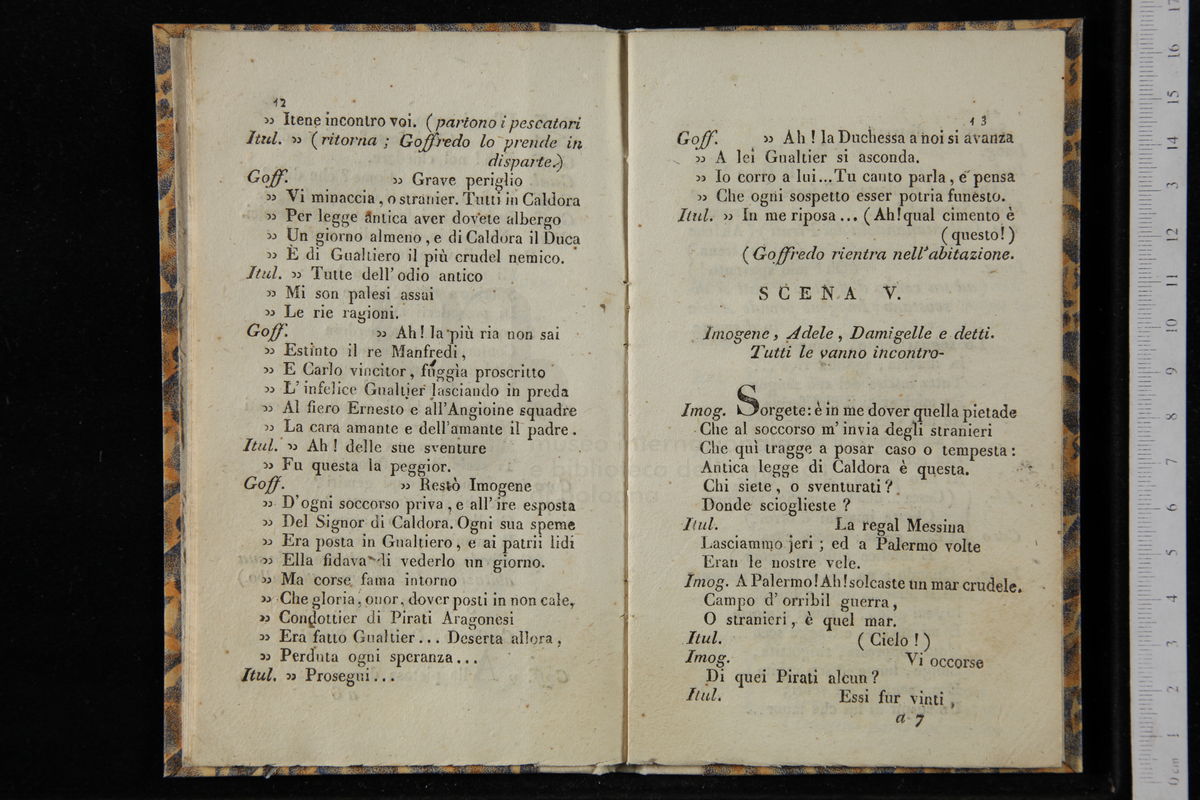 12
» Itene incontro voi. (partono i pescatori
Itul. » (ritorna ; Goffredo lo prende in
disparte.)
Goff. » Grave periglio
» Vi minaccia, o stranier. Tutti in Caldora
» Per legge antica aver dovete albergo
» Un giorno almeno, e di Caldora il Duca
» È di Gualtiero il più crudel nemico.
Itul. » Tutte dell' odio antico
» Mi son palesi assai
» Le rie ragioni.
Goff. » Ah! la più ria non sai
» Estinto il re Manfredi,
» E Carlo vincitor, fuggìa proscritto
» L' infelice Gualtier lasciando in preda
» Al fiero Ernesto e all'Angioine squadre
» La cara amante e dell'amante il padre.
Itul. » Ah! delle sue sventure
» Fu questa la peggior.
Goff. » Restò Imogene
» D'ogni soccorso priva, e all' ire esposta
» Del Signor di Caldora. Ogni sua speme
» Era posta in Gualtiero, e ai patrii lidi
» Ella fidava di vederlo un giorno.
» Ma corse fama intorno
» Che gloria, onor, dover posti in non cale,
» Condottier di Pirati Aragonesi
» Era fatto Gualtier... Deserta allora,
» Perduta ogni speranza...
Itul. » Prosegui...
13
Goff. » Ah! la Duchessa a noi si avanza
» A lei Gualtier si asconda.
» Io corro a lui... Tu cauto parla, e pensa
» Che ogni sospetto esser potria funesto.
Itul. » In me riposa... (Ah! qual cimento è
(questo!)
(Goffredo rientra nell'abitazione.
SCENA V.
Imogene, Adele, Damigelle e detti.
Tutti le vanno incontro-
Imog. Sorgete: è in me dover quella pietade
Che al soccorso m' invia degli stranieri
Che quì tragge a posar caso o tempesta:
Antica legge di Caldora è questa.
Chi siete, o sventurati?
Donde scioglieste?
Itul. La regal Messina
Lasciammo jeri; ed a Palermo volte
Eran le nostre vele.
Imog. A Palermo! Ah! solcaste un mar crudele.
Campo d' orribil guerra,
O stranieri, è quel mar.
Itul. (Cielo!)
Imog. Vi occorse
Di quei Pirati alcun?
Itul. Essi fur vinti,
a 7